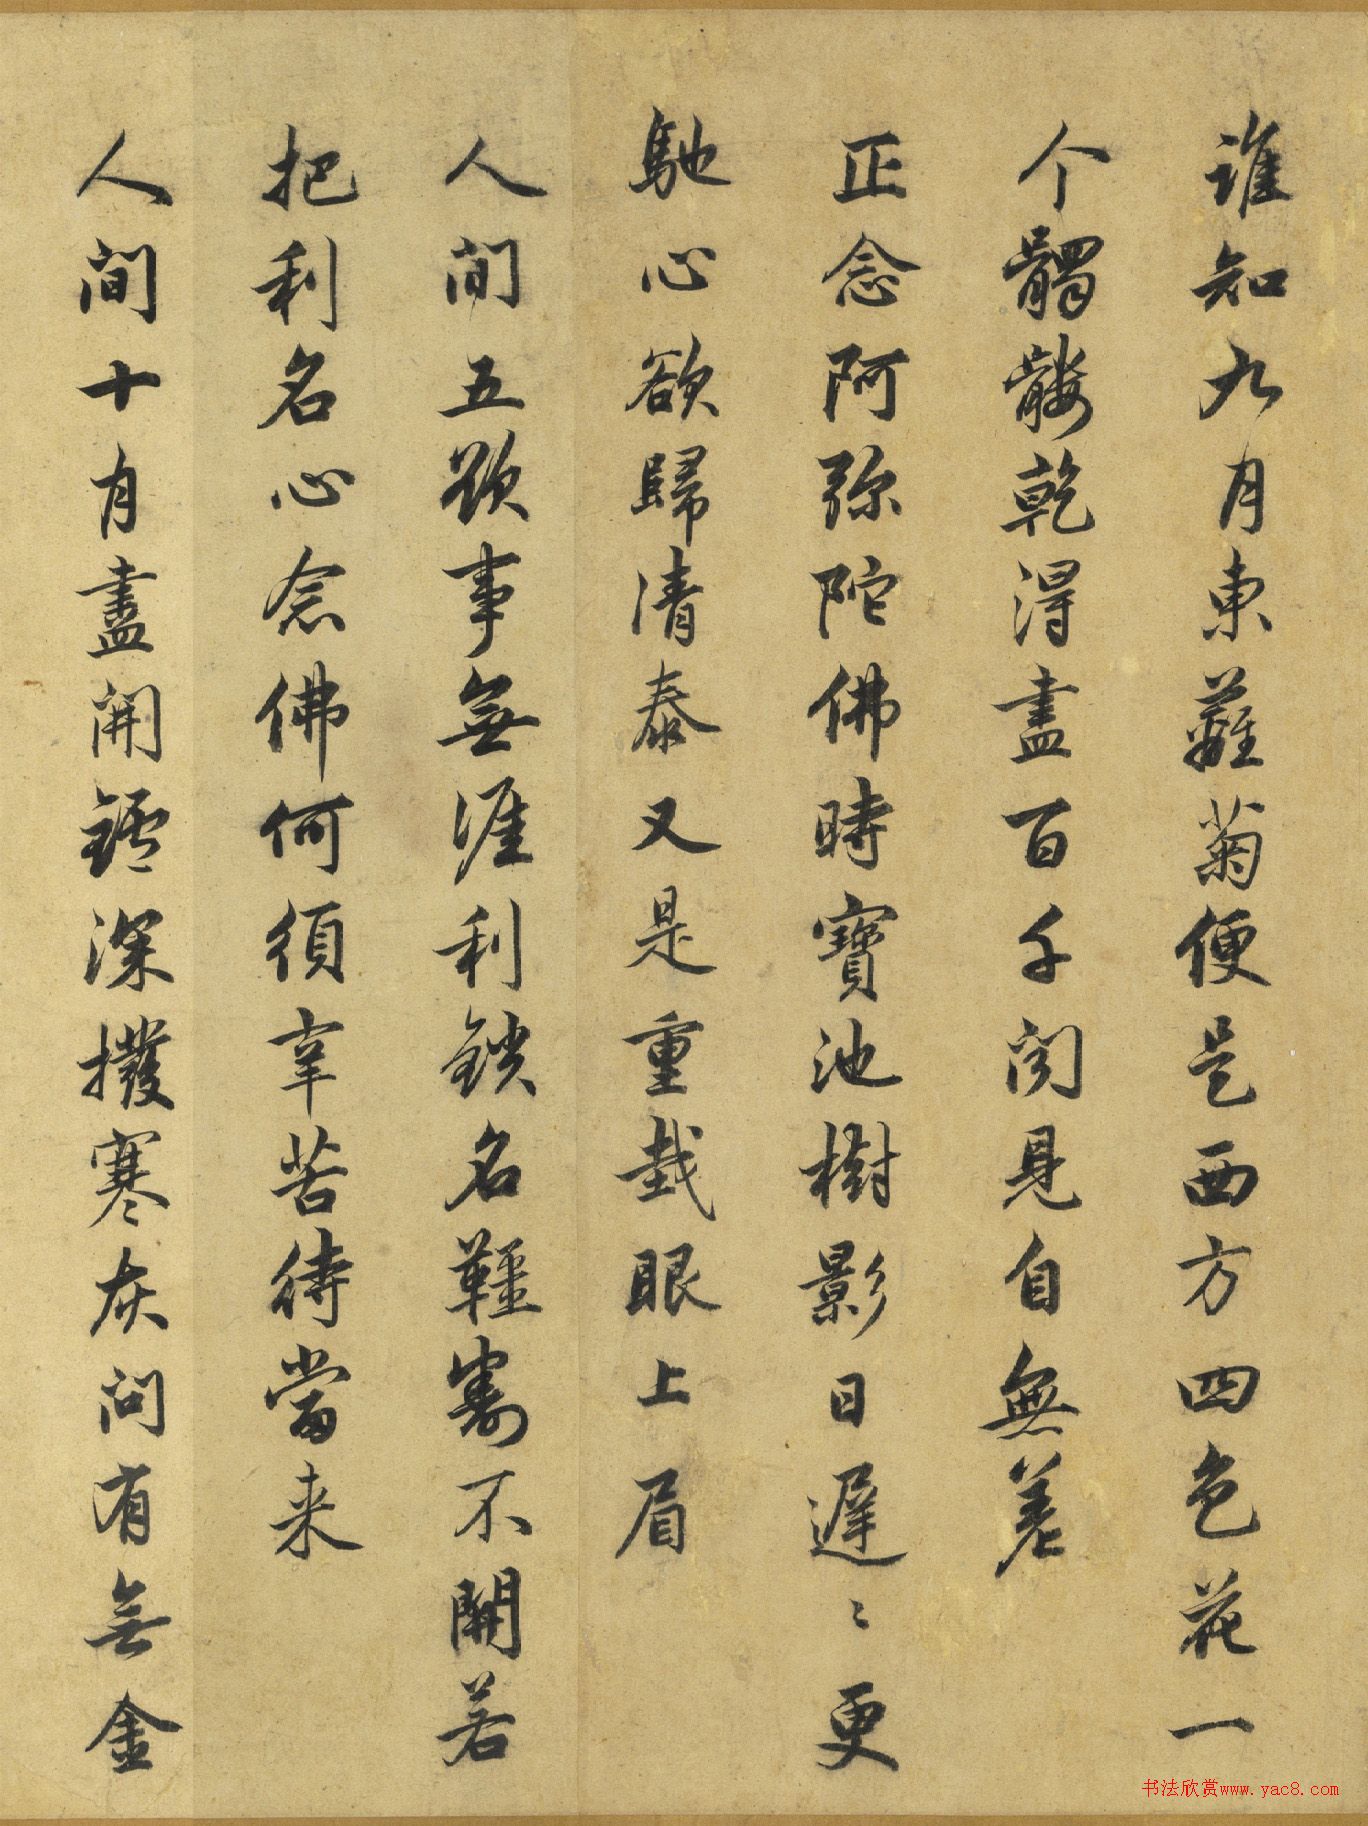 谁知九月東蘺菊便是西方四色花一
个髑髏乾得盡百千闻見自無差
正念阿弥陀佛時寶池樹影日遲〻更
馳心欲歸清泰又是重栽眼上眉
人间五欲事無涯利鎖名韁割不開若
把利名心念佛何須辛苦待當来
人间十月盡開鑪深撥寒灰问有無金
书法欣赏www.yac8.com